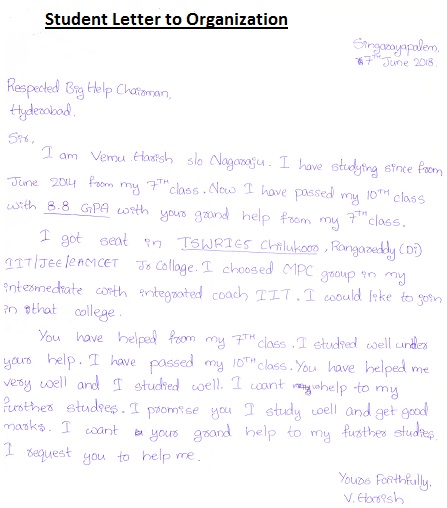 Student Letter to Organization
Singarayapalem.
17TH June 2018.
Respected Big Help Chairman,
Hyderabad.
Sir,
I am Vemu Harish s/o Nagaraju. I have studying since from
June 2014 from my 7TH class. Now I have passed my 10TH class
with 8.8 GPA with your grand help from my 7TH class.
I got seat in TSWRIES Chilukooro, Rangareddy (Di)
IIT/JEE/EAMCET Jr Collage. I choosed MPC group in my
intermediate with integrated coach IIT. I would like to join
in that college.
You have helped from my 7TH class. I studied well under
your help. I have passed my 10TH class. You have helped me
very well and I studied well. I want help to my
further studies. I promise you I study well and get good
marks. I want your grand help to my further studies.
I request you to help me.
Yours Faithfully,
V. Harish